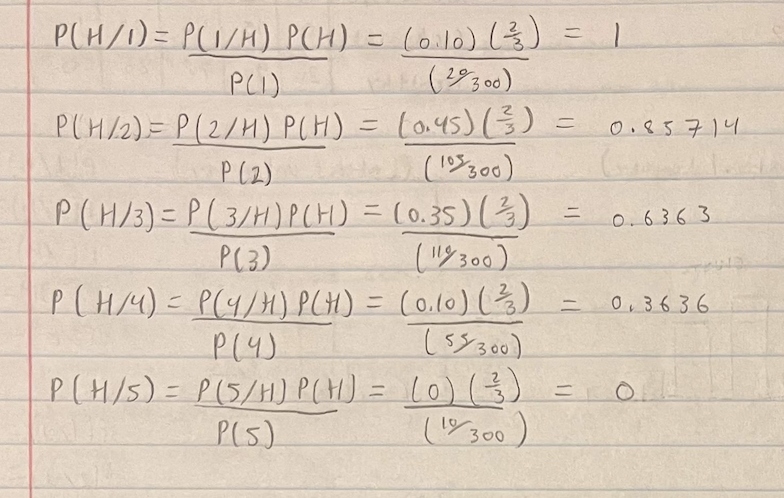 P(H/1) = P(1/H) P(H) / P(1) = (0.10)(2/3) / (20/300) = 1
P(H/2) = P(2/H) P(H) / P(2) = (0.45)(2/3) / (105/300) = 0.85714
P(H/3) = P(3/H) P(H) / P(3) = (0.35)(2/3) / (110/300) = 0.6363
P(H/4) = P(4/H) P(H) / P(4) = (0.10)(2/3) / (55/300) = 0.3636
P(H/5) = P(5/H) P(H) / P(5) = (0)(2/3) / (10/300) = 0